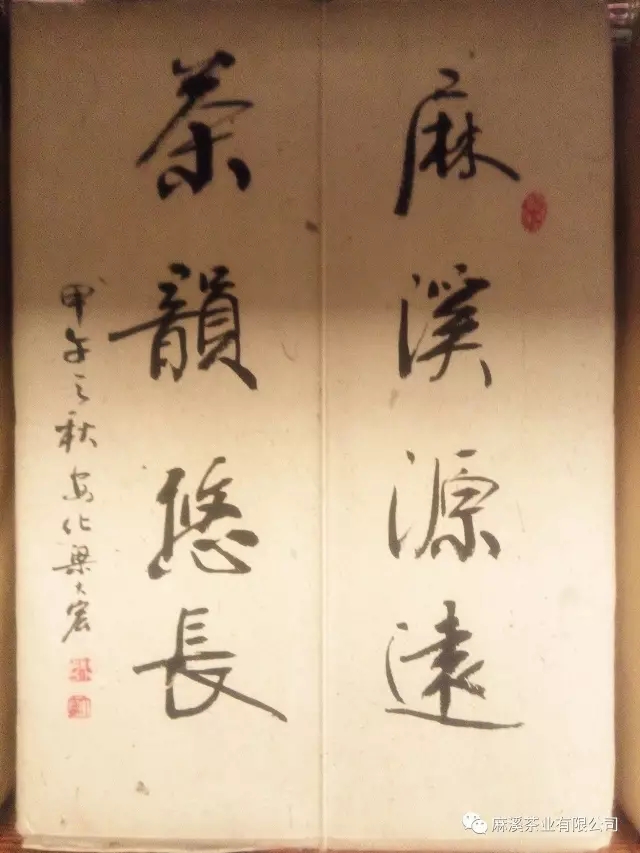 麻溪源遠
茶韻悠長
甲午之秋安化梁大宏
麻溪茶业有限公司